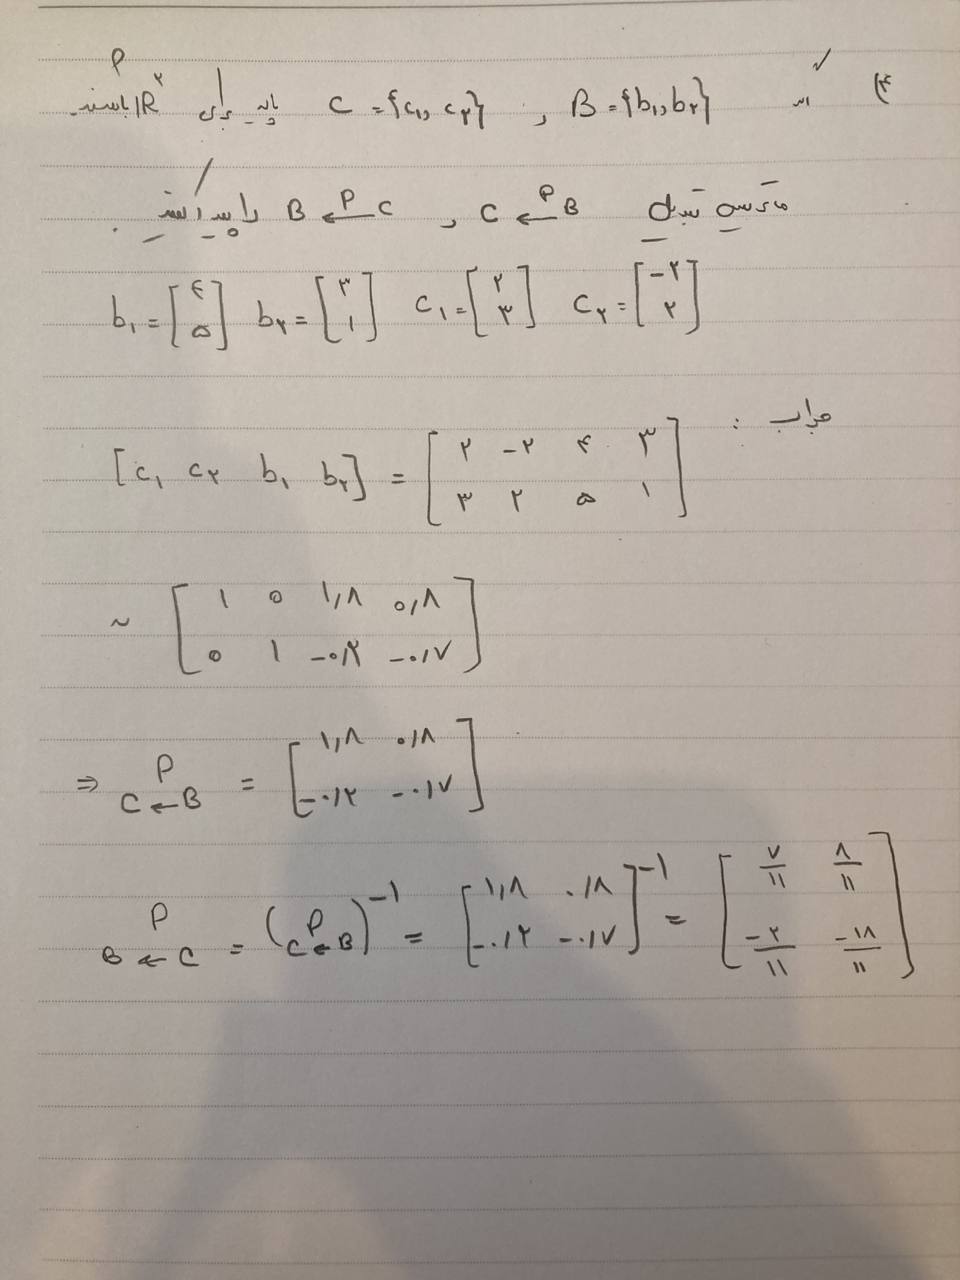 ۴) اگر B = {b₁, b₂} و C = {c₁, c₂} پایه برای IR² باشند.
ماتریس تبدیل P C ← B و P B ← C را پیدا کنید.
b₁ = [۴ ۵] b₂ = [۳ ۱] c₁ = [۲ ۳] c₂ = [-۲ ۲]
جواب :
[c₁ c₂ b₁ b₂] = [۲ -۲ ۴ ۳
۳ ۲ ۵ ۱]
~ [۱ ۰ ۱,۸ ۰,۸
۰ ۱ -۰,۲ -۰,۷]
⇒ P C ← B = [۱,۸ ۰,۸
-۰,۲ -۰,۷]
P B ← C = (P C ← B)⁻¹ = [۱,۸ ۰,۸
-۰,۲ -۰,۷]⁻¹ = [۷/۱۱ ۸/۱۱
-۲/۱۱ -۱۸/۱۱]